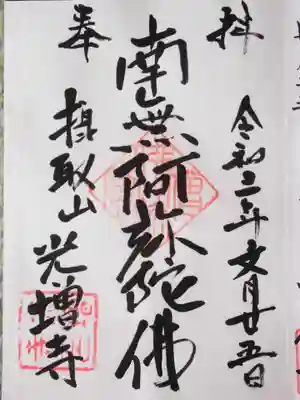 拝
令和二年文月廿五日
南無阿弥陀佛
奉
摂取山
光増寺